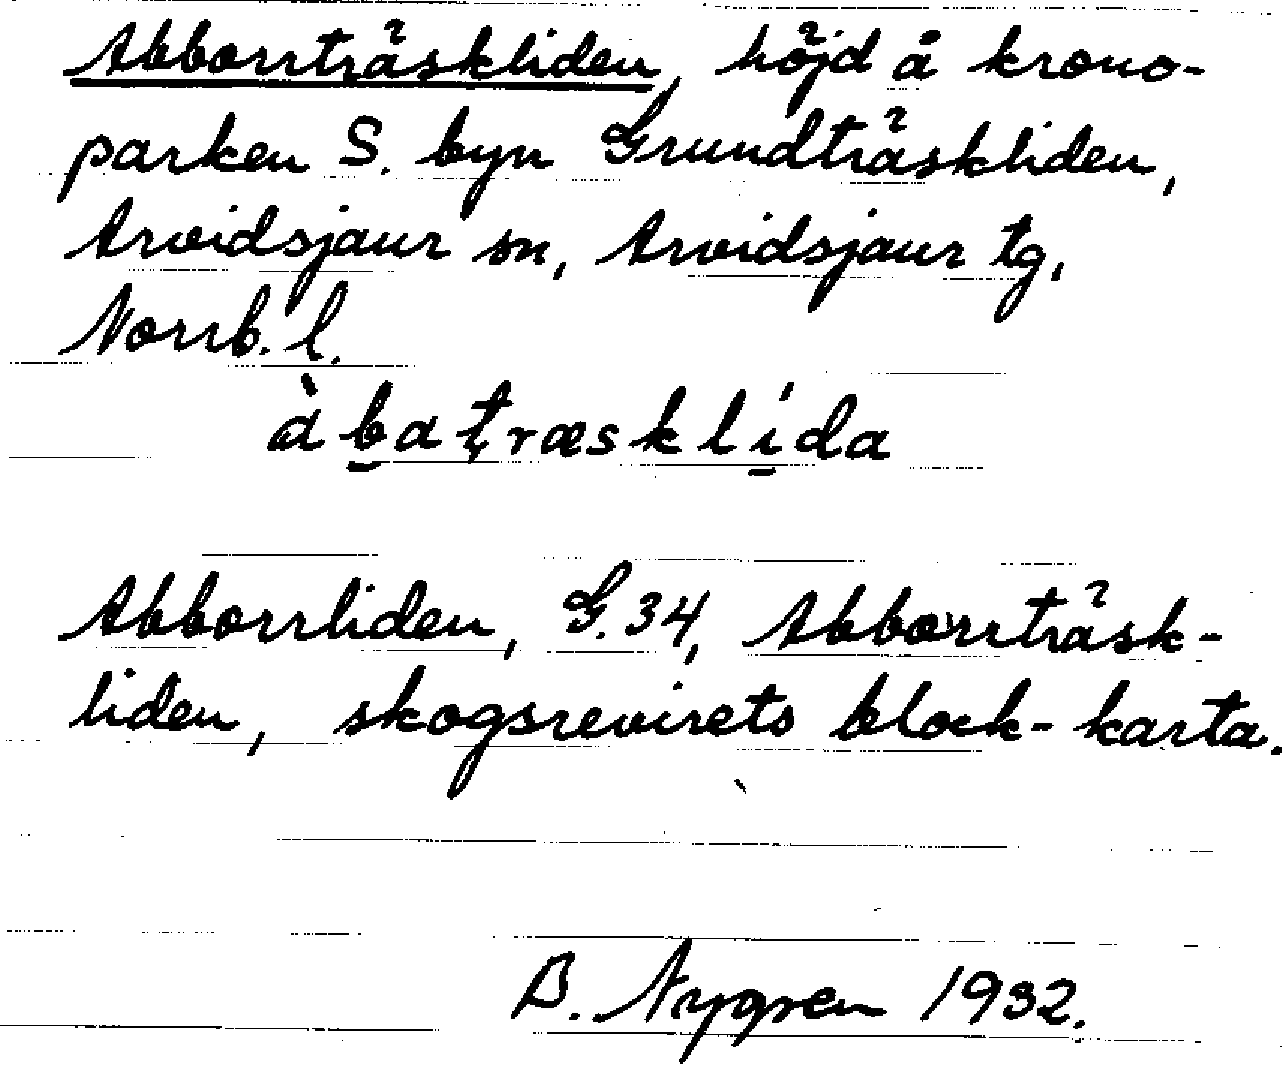 Abborrträskliden, höjd å krono-
parken S. byn Grundträskliden,
Arvidsjaur sn, Arvidsjaur tg,
Norrb. l.
àb̲aţræsklí̲da
Abborrliden, G.34, Abborrträsk-
liden, skogsrevirets block-karta.
B. Nygren 1932.